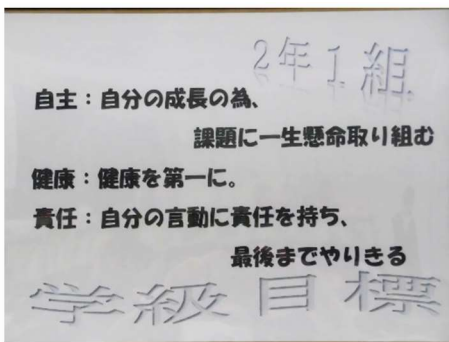 2年1組
自主：自分の成長の為、
課題に一生懸命取り組む
健康：健康を第一に。
責任：自分の言動に責任を持ち、
最後までやりきる
学級目標